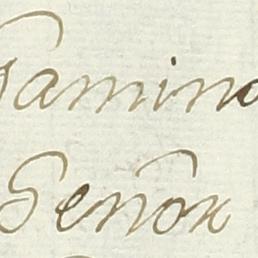 Gamino
Señor